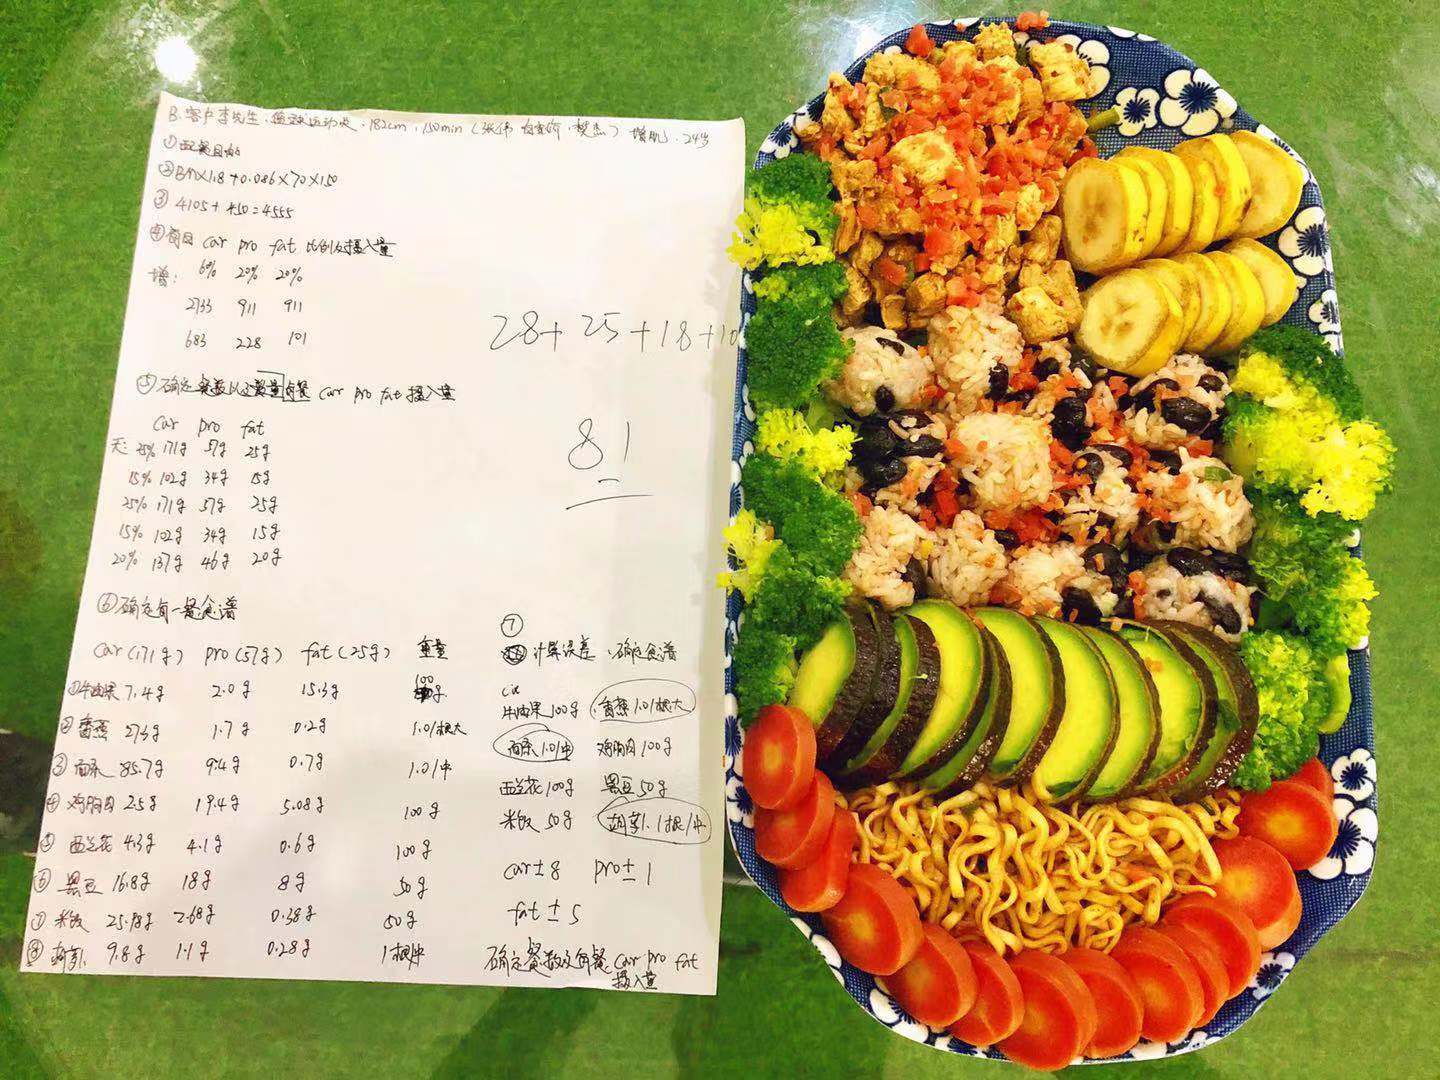 B. 客户李先生、篮球运动员、182cm、150min（张伟 增肌、24岁
①配餐目的
②BM×1.8+0.086×70×150
③ 4105+450=4555
④ 每日 car pro fat 比例及摄入量
增: 60% 20% 20%
2733 911 911
683 228 101
28+25+18+10
81
⑤确定餐数以及每餐 car pro fat 摄入量
car pro fat
天: 25% 171g 57g 25g
15% 102g 34g 15g
25% 171g 57g 25g
15% 102g 34g 15g
20% 137g 46g 20g
⑥确定每一餐食谱
car(171g) pro(57g) fat(25g) 重量
①牛油果 7.4g 2.0g 15.3g 100g
②香蕉 27.3g 1.7g 0.2g 1.01根大
③面条 85.7g 9.4g 0.7g 1.01中
④鸡胸肉 2.5g 19.4g 5.08g 100g
⑤西兰花 4.3g 4.1g 0.6g 100g
⑥黑豆 16.8g 18g 8g 50g
⑦米饭 25.98g 2.68g 0.38g 50g
⑧胡萝卜 9.8g 1.1g 0.28g 1根中
⑦
计算误差、确定食谱
牛油果100g、香蕉1.01根大
面条1.01中 鸡胸肉100g
西兰花100g 黑豆50g
米饭50g 胡萝卜1根/中
car±8 pro±1
fat±5
确定餐数及每餐 car pro fat
摄入量